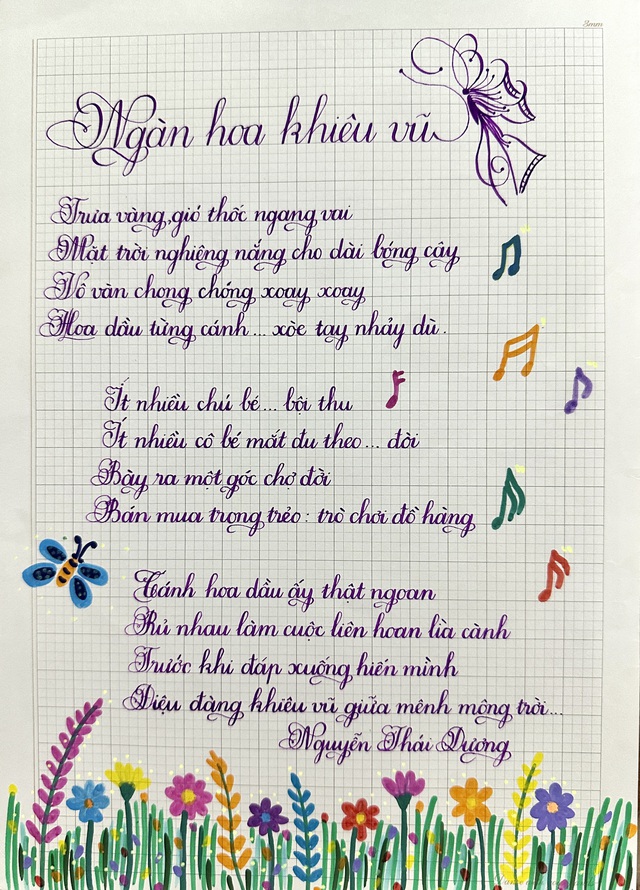 3mm
Ngàn hoa khiêu vũ
Trưa vàng, gió thốc ngang vai
Mặt trời nghiêng nắng cho dài bóng cây
Vô vàn chong chóng xoay xoay
Hoa dầu từng cánh... xòe tay nhảy dù.
Ít nhiều chú bé... bội thu
Ít nhiều cô bé mắt đu theo... đòi
Bày ra một góc chợ đời
Bán mua trong trẻo: trò chơi đồ hàng
Cánh hoa dầu ấy thật ngoan
Rủ nhau làm cuộc liên hoan lìa cành
Trước khi đáp xuống hiến mình
Diệu đàng khiêu vũ giữa mênh mông trời...
Nguyễn Thái Dương